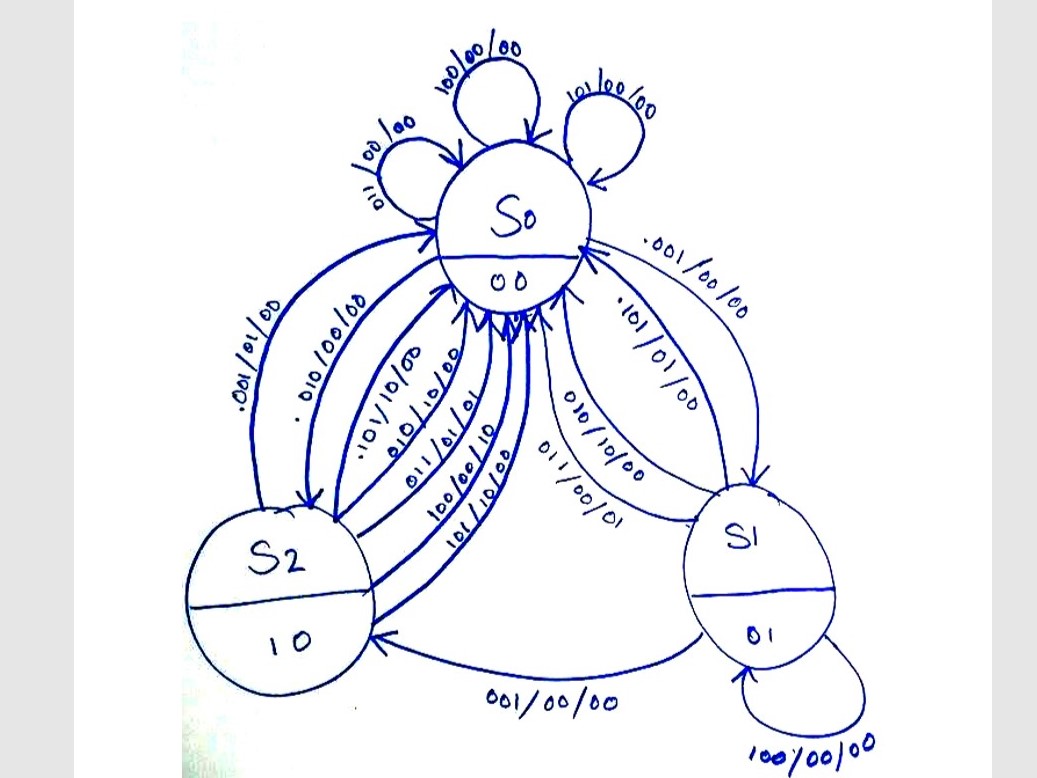 100/00/00
101/00/00
011/00/00
S0
00
.001/00/00
.001/01/00
.010/00/00
.101/10/00
010/10/00
011/01/01
100/00/10
101/10/00
.101/01/00
010/01/00
011/00/01
S2
10
S1
01
001/00/00
100/00/00